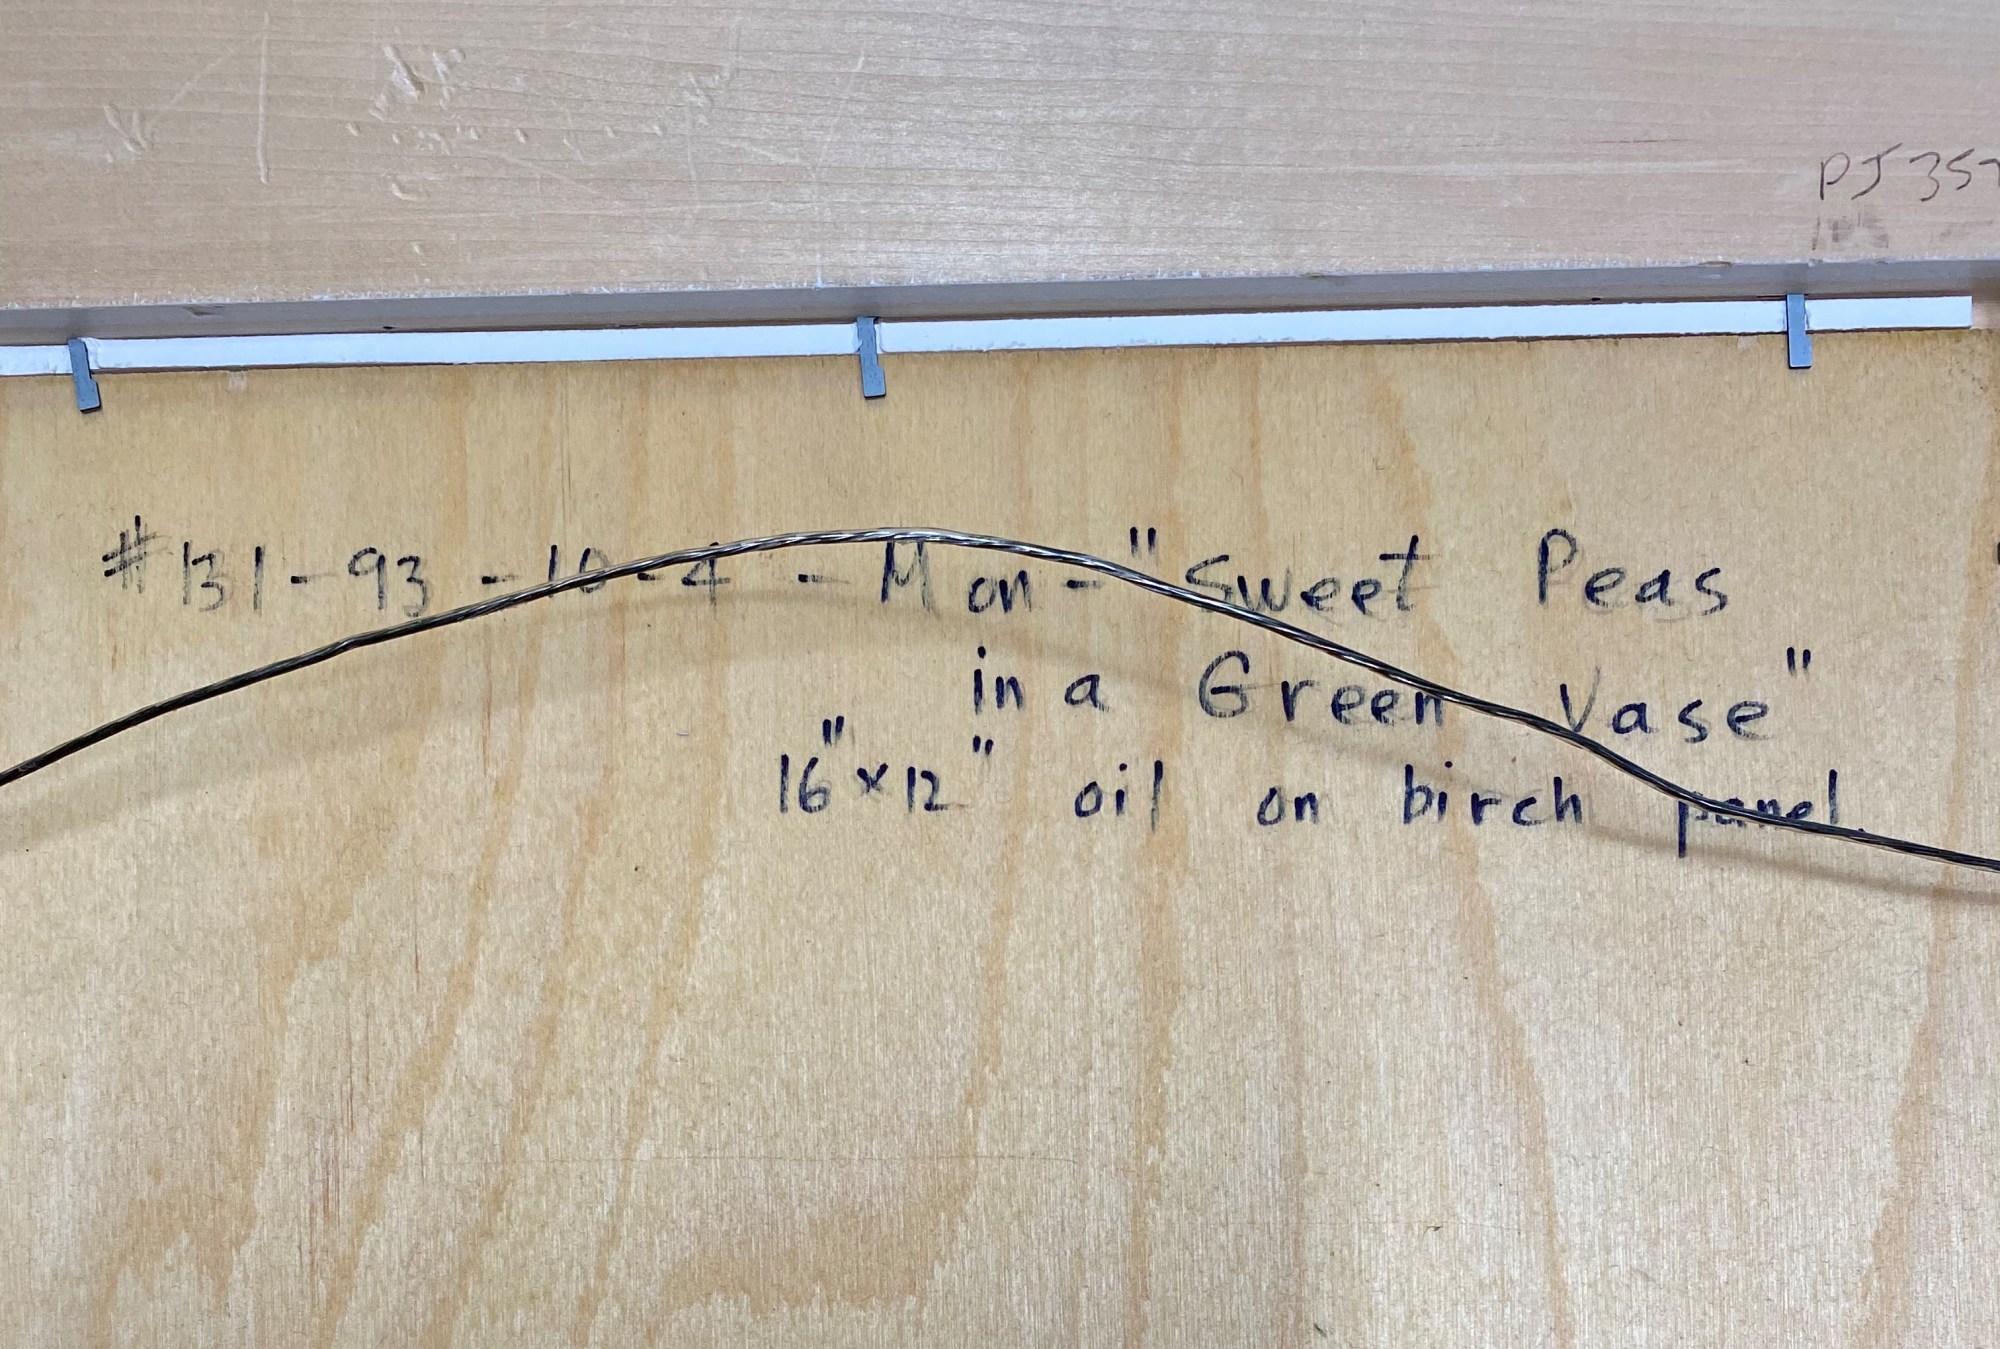 PJ 357
#131-93-10-4 - Mon - "Sweet Peas
in a Green Vase"
16" x 12" oil on birch panel.